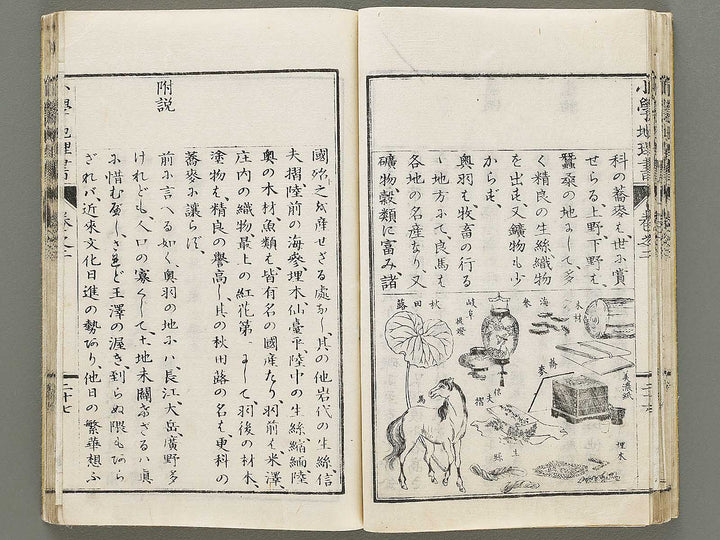 小學地理書 卷之二
科の蕎麥も世に賞
せらる上野下野も
蠶桑の地にして、多
く精良の生絲織物
を出だす、又鑛物も少
からず、
奥羽も牧畜の行る
ゝ地方にて、良馬も
各地の名産なり、又
礦物穀類に富み、諸
木材
美濃紙
埋木
海參
蕎麥
岐阜提燈
生絲
秋田蕗
馬
國殆之を産せざる處なし、其の他岩代の生絲、信
夫摺陸前の海參埋木仙臺平陸中の生絲縮緬陸
奥の木材魚類も皆有名の國産なり羽前も米澤、
庄内の織物最上の紅花第一にして、羽後の材木、
塗物も、精良の譽高し其の秋田蕗の名も、更科の
蕎麥に讓らず、
附説
前に言へる如く、奥羽の地にハ、長江大岳、廣野多
けれども、人口の寡くして、土地未闢けざるハ眞
に惜むべし、されど王澤の渥き、到らぬ隈もあら
ざれバ、近來文化日進の勢あり、他日の繁華想ふ
小學地理書 卷之二 二十七